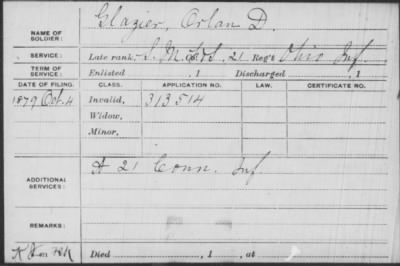 NAME OF SOLDIER: Glazier, Orlan D.
SERVICE: Late rank, 21 Reg't Ohio Inf.
TERM OF SERVICE: Enlisted , 1 Discharged , 1
DATE OF FILING. CLASS. APPLICATION NO. LAW. CERTIFICATE NO.
1879 Oct. 4 Invalid, 313514
Widow,
Minor,
ADDITIONAL SERVICES: 21 Conn. Inf.
REMARKS:
Died , 1 , at